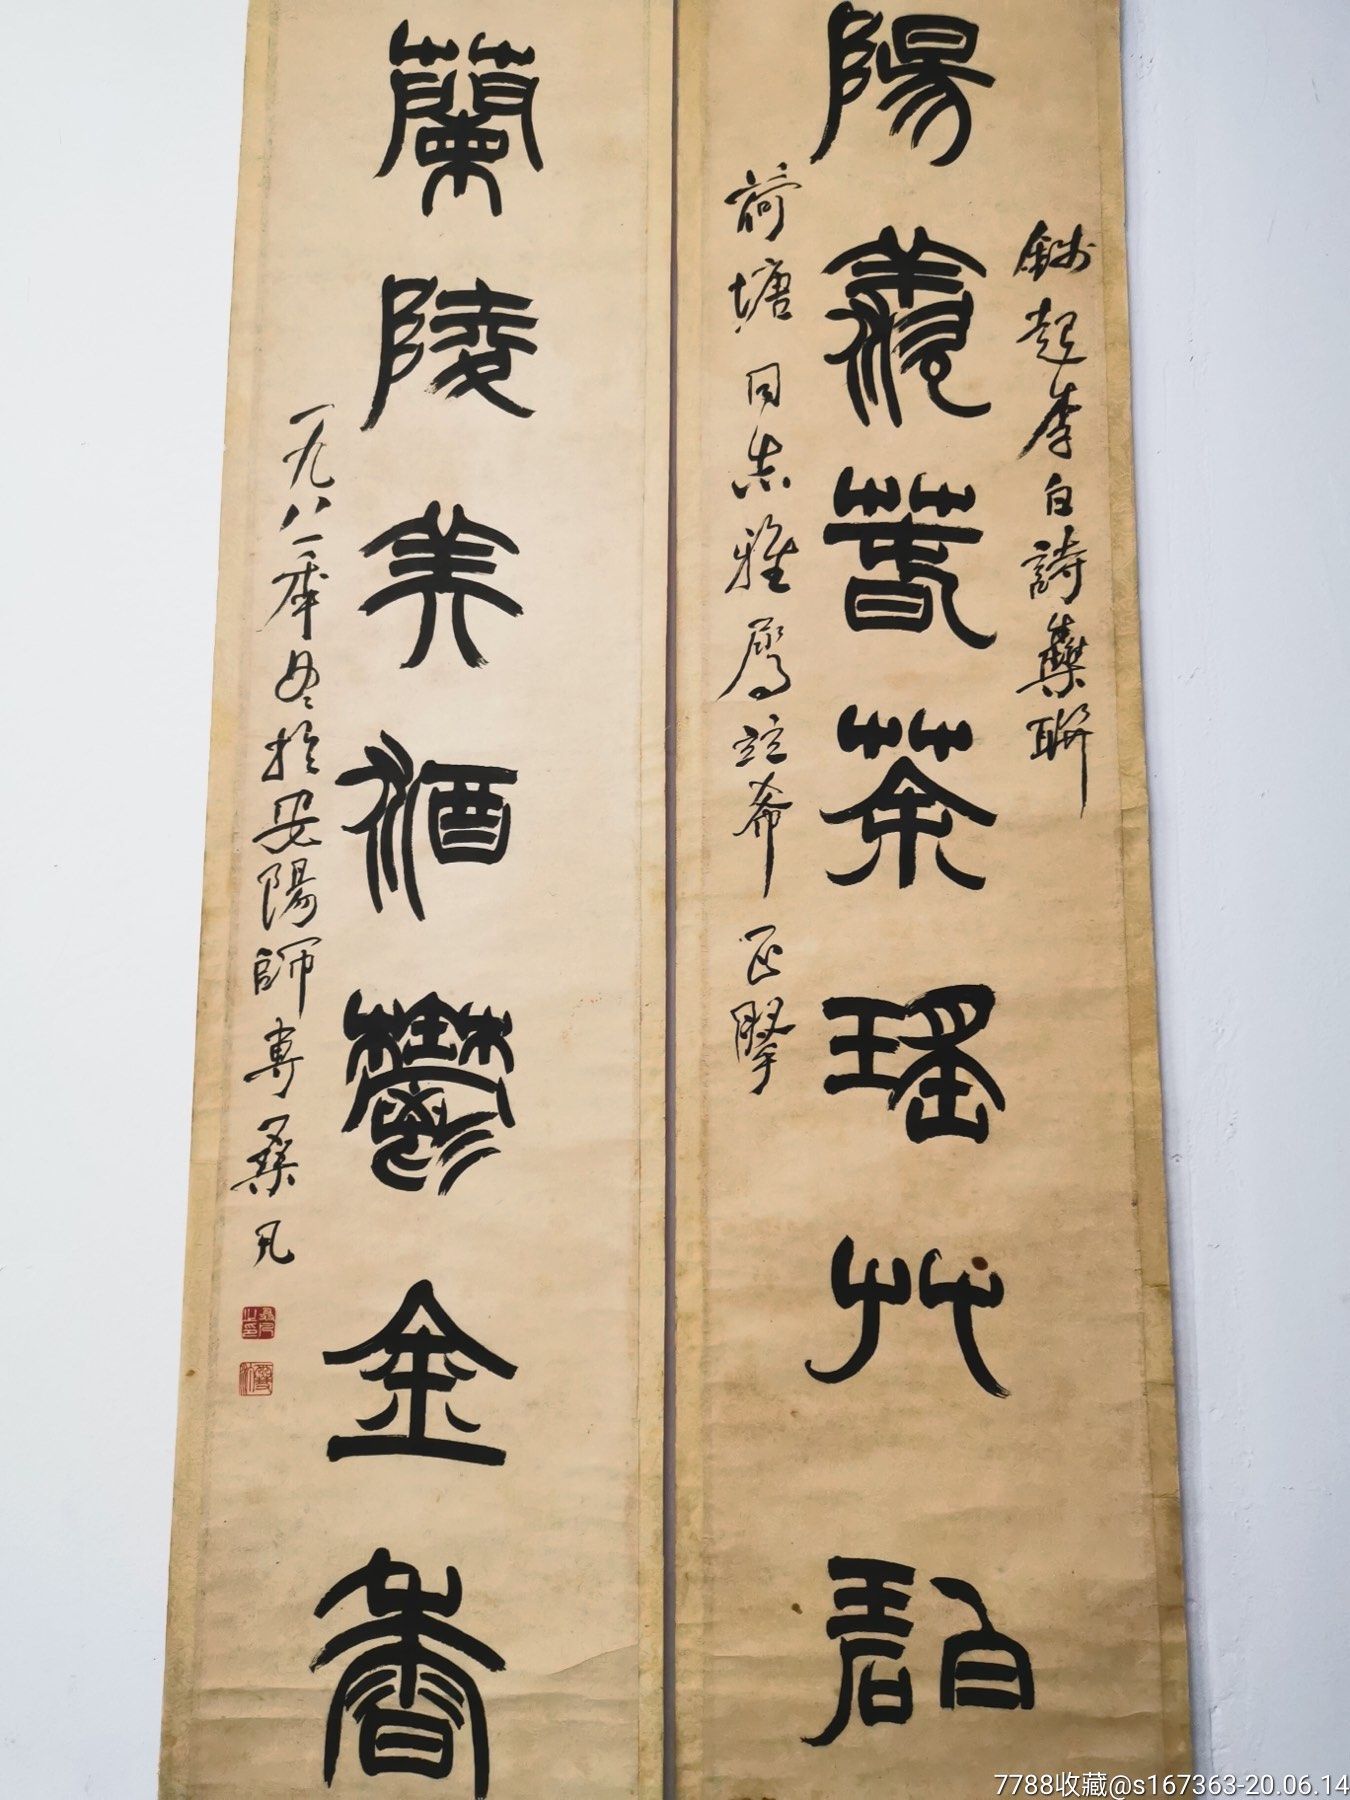 錢起李白詩集聯
陽羨春茶瑤艸碧
荷塘同志雅屬竝希正掔
蘭陵美酒鬱金香
一九八一年冬於安陽師專桑凡
桑凡之印
7788收藏@s167363-20.06.14